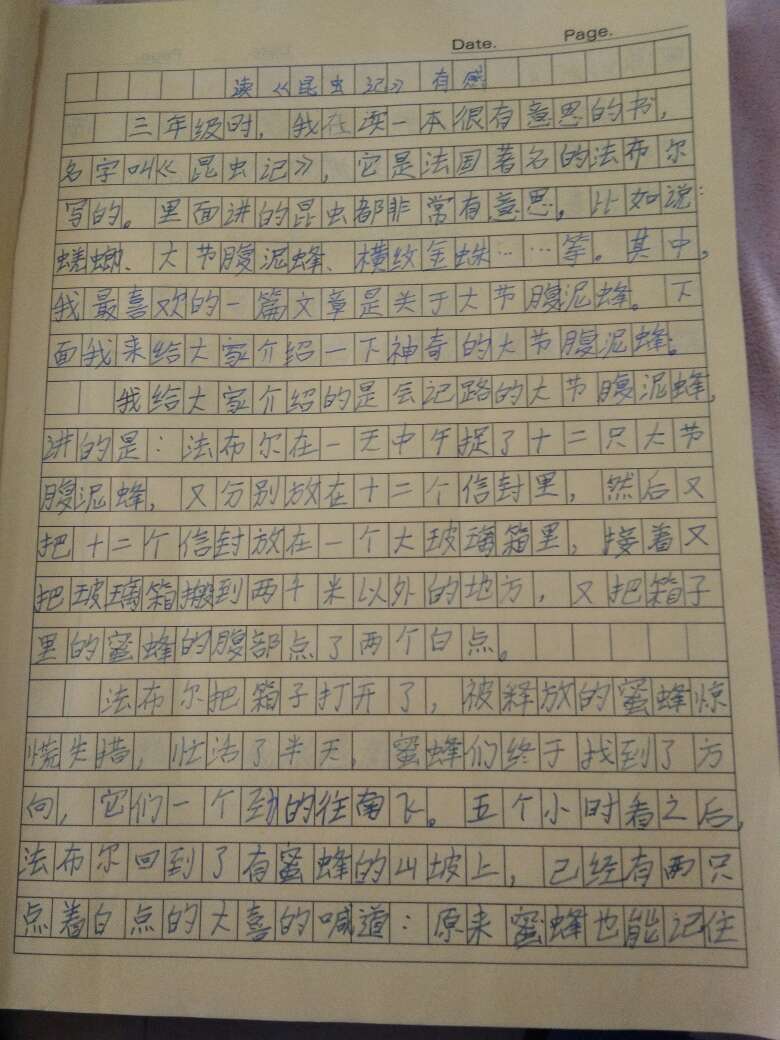 Date. Page.
读《昆虫记》有感
三年级时，我在读一本很有意思的书，
名字叫《昆虫记》，它是法国著名的法布尔
写的。里面进的昆虫都非常有意思，比如说：
蜣螂、大节腹泥蜂、横纹金蛛……等。其中，
我最喜欢的一篇文章是关于大节腹泥蜂。下
面我来给大家介绍一下神奇的大节腹泥蜂。
我给大家介绍的是会记路的大节腹泥蜂，
讲的是：法布尔在一天中午捉了十二只大节
腹泥蜂，又分别放在十二个信封里，然后又
把十二个信封放在一个大玻璃箱里，接着又
把玻璃箱搬到两千米以外的地方，又把箱子
里的蜜蜂的腹部点了两个白点。
法布尔把箱子打开了，被释放的蜜蜂惊
慌失措，忙活了半天，蜜蜂们终于找到了方
向，它们一个劲的往南飞。五个小时看之后，
法布尔回到了有蜜蜂的山坡上，已经有两只
点着白点的大喜的喊道：原来蜜蜂也能记住